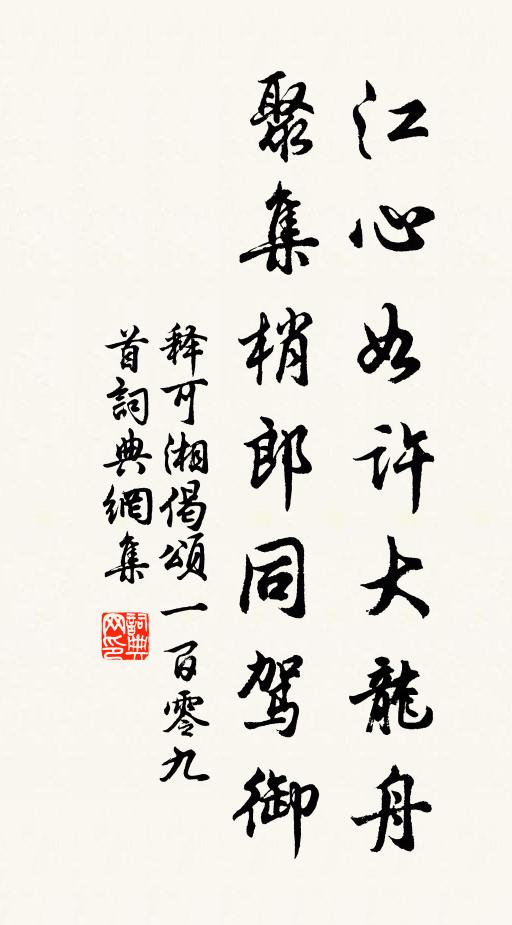 江心如许大龍舟
聚集梢郎同駕御
释可湘偈頌一百零九
首詞典網集
詞典
网印